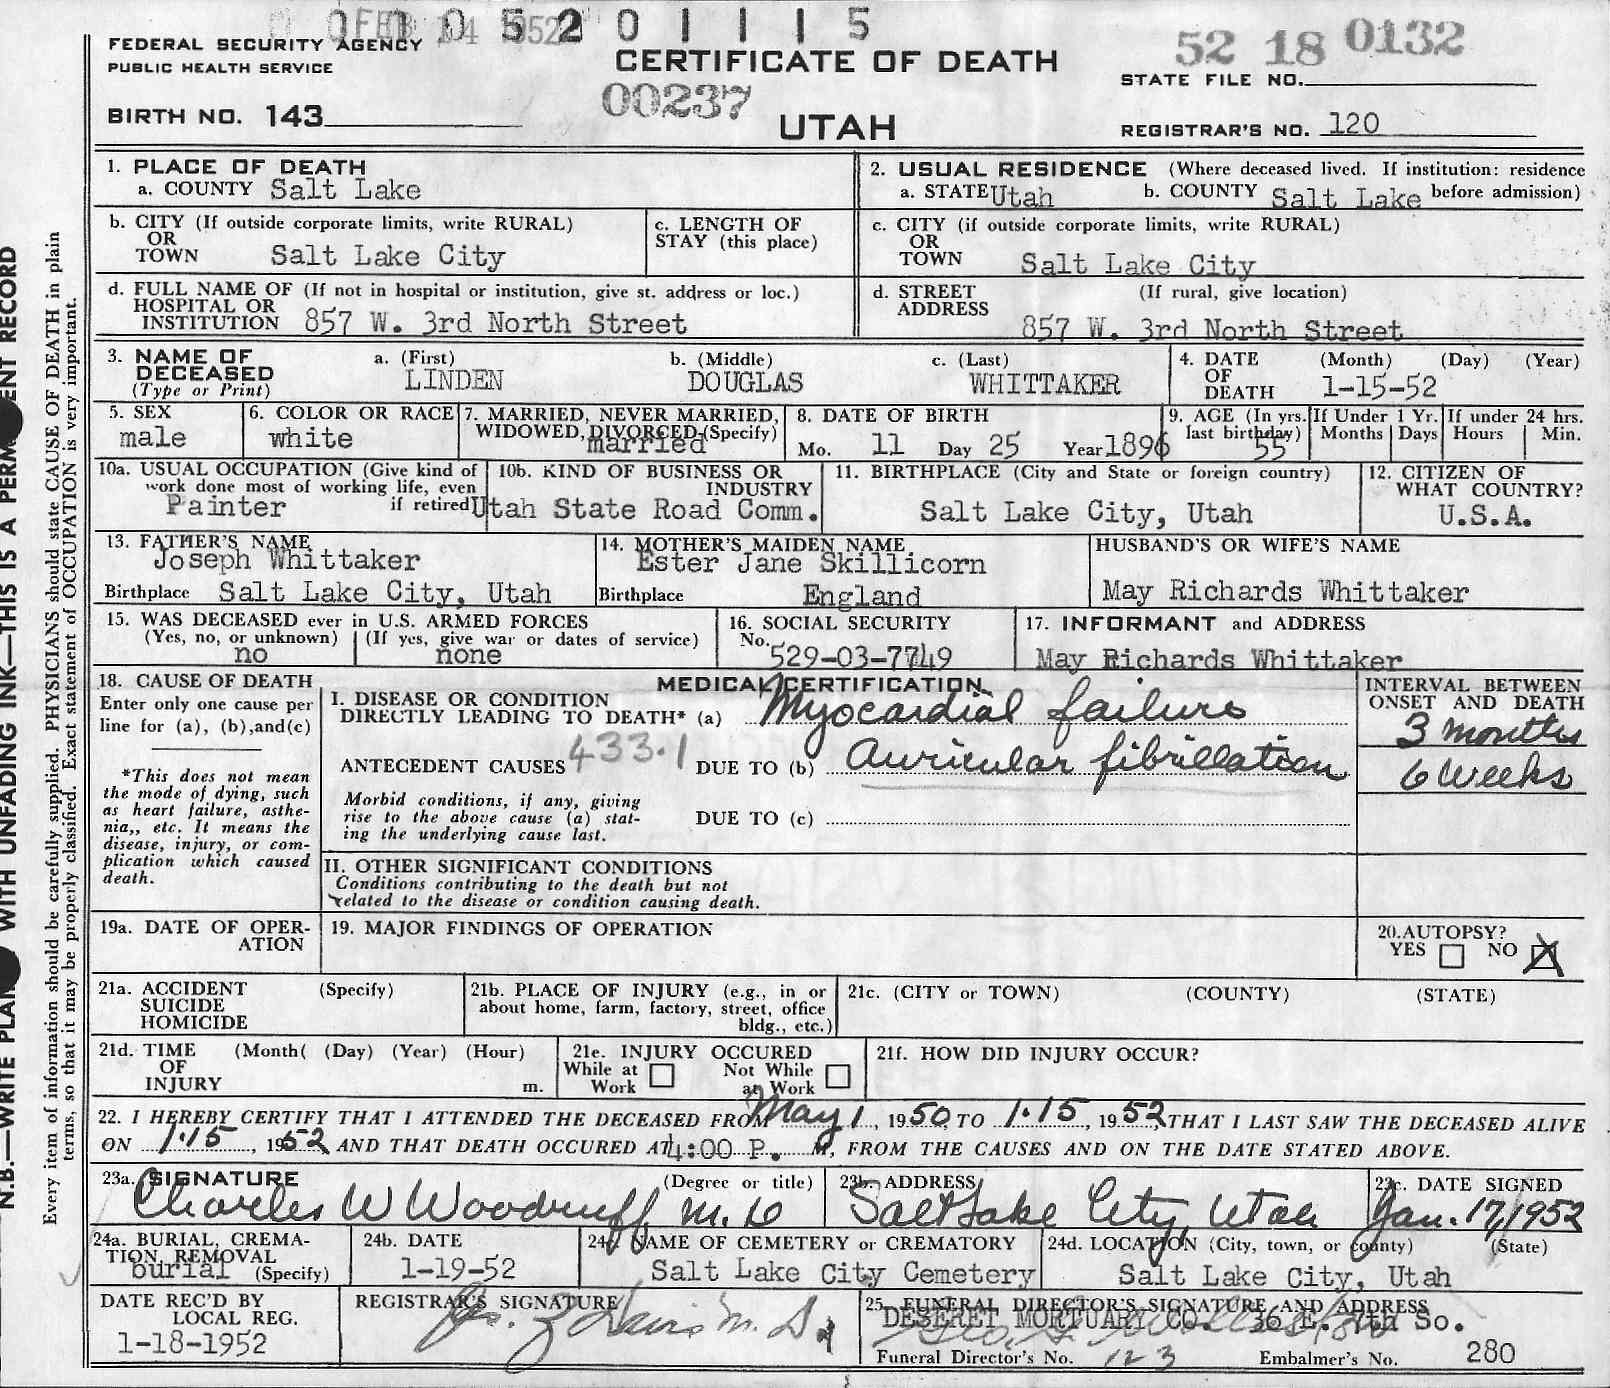 FEB 14 1952
0 1 0 5 2 0 1 1 1 5
FEDERAL SECURITY AGENCY
PUBLIC HEALTH SERVICE
CERTIFICATE OF DEATH
52 18 0132
STATE FILE NO.
BIRTH NO. 143
00237
UTAH
REGISTRAR'S NO. 120
1. PLACE OF DEATH
a. COUNTY Salt Lake
2. USUAL RESIDENCE (Where deceased lived. If institution: residence
a. STATE Utah b. COUNTY Salt Lake before admission)
b. CITY (If outside corporate limits, write RURAL)
OR
TOWN Salt Lake City
c. LENGTH OF
STAY (this place)
c. CITY (if outside corporate limits, write RURAL)
OR
TOWN Salt Lake City
d. FULL NAME OF (If not in hospital or institution, give st. address or loc.)
HOSPITAL OR
INSTITUTION 857 W. 3rd North Street
d. STREET (If rural, give location)
ADDRESS
857 W. 3rd North Street
3. NAME OF a. (First) b. (Middle) c. (Last)
DECEASED LINDEN DOUGLAS WHITTAKER
(Type or Print)
4. DATE (Month) (Day) (Year)
OF
DEATH 1-15-52
5. SEX
male
6. COLOR OR RACE
white
7. MARRIED, NEVER MARRIED,
WIDOWED, DIVORCED (Specify)
married
8. DATE OF BIRTH
Mo. 11 Day 25 Year 1896
9. AGE (In yrs.
last birthday)
55
If Under 1 Yr.
Months Days
If under 24 hrs.
Hours Min.
10a. USUAL OCCUPATION (Give kind of
work done most of working life, even
Painter if retired
10b. KIND OF BUSINESS OR
INDUSTRY
Utah State Road Comm.
11. BIRTHPLACE (City and State or foreign country)
Salt Lake City, Utah
12. CITIZEN OF
WHAT COUNTRY?
U.S.A.
13. FATHER'S NAME
Joseph Whittaker
Birthplace Salt Lake City, Utah
14. MOTHER'S MAIDEN NAME
Ester Jane Skillicorn
Birthplace England
HUSBAND'S OR WIFE'S NAME
May Richards Whittaker
15. WAS DECEASED ever in U.S. ARMED FORCES
(Yes, no, or unknown) (If yes, give war or dates of service)
no none
16. SOCIAL SECURITY
No. 529-03-7749
17. INFORMANT and ADDRESS
May Richards Whittaker
18. CAUSE OF DEATH
Enter only one cause per
line for (a), (b),and(c)
*This does not mean
the mode of dying, such
as heart failure, asthe-
nia,, etc. It means the
disease, injury, or com-
plication which caused
death.
MEDICAL CERTIFICATION
I. DISEASE OR CONDITION
DIRECTLY LEADING TO DEATH* (a) Myocardial failure
433.1
ANTECEDENT CAUSES DUE TO (b) Auricular fibrillation
Morbid conditions, if any, giving
rise to the above cause (a) stat-
ing the underlying cause last.
DUE TO (c)
INTERVAL BETWEEN
ONSET AND DEATH
3 months
6 weeks
II. OTHER SIGNIFICANT CONDITIONS
Conditions contributing to the death but not
related to the disease or condition causing death.
19a. DATE OF OPER-
ATION
19. MAJOR FINDINGS OF OPERATION
20.AUTOPSY?
YES NO X
21a. ACCIDENT (Specify)
SUICIDE
HOMICIDE
21b. PLACE OF INJURY (e.g., in or
about home, farm, factory, street, office
bldg., etc.)
21c. (CITY or TOWN) (COUNTY) (STATE)
21d. TIME (Month( (Day) (Year) (Hour)
OF
INJURY m.
21e. INJURY OCCURED
While at Not While
Work at Work
21f. HOW DID INJURY OCCUR?
22. I HEREBY CERTIFY THAT I ATTENDED THE DECEASED FROM May 1, 1950, TO 1.15, 1952, THAT I LAST SAW THE DECEASED ALIVE
ON 1.15, 1952 AND THAT DEATH OCCURED AT 4:00 P. M, FROM THE CAUSES AND ON THE DATE STATED ABOVE.
23a. SIGNATURE (Degree or title)
Charles W Woodruff, M.D
23b. ADDRESS
Salt Lake City, Utah
23c. DATE SIGNED
Jan. 17, 1952
24a. BURIAL, CREMA-
TION, REMOVAL
burial (Specify)
24b. DATE
1-19-52
24c. NAME OF CEMETERY or CREMATORY
Salt Lake City Cemetery
24d. LOCATION (City, town, or county) (State)
Salt Lake City, Utah
DATE REC'D BY
LOCAL REG.
1-18-1952
REGISTRAR'S SIGNATURE
25. FUNERAL DIRECTOR'S SIGNATURE AND ADDRESS
DESERET MORTUARY CO. 36 E. 7th So.
Funeral Director's No. 123 Embalmer's No. 280
N.B.—WRITE WITH UNFADING INK—THIS IS A RECORD
Every item of information should be carefully supplied. PHYSICIANS should state CAUSE OF DEATH in plain
terms, so that it may be properly classified. Exact statement of OCCUPATION is very important.